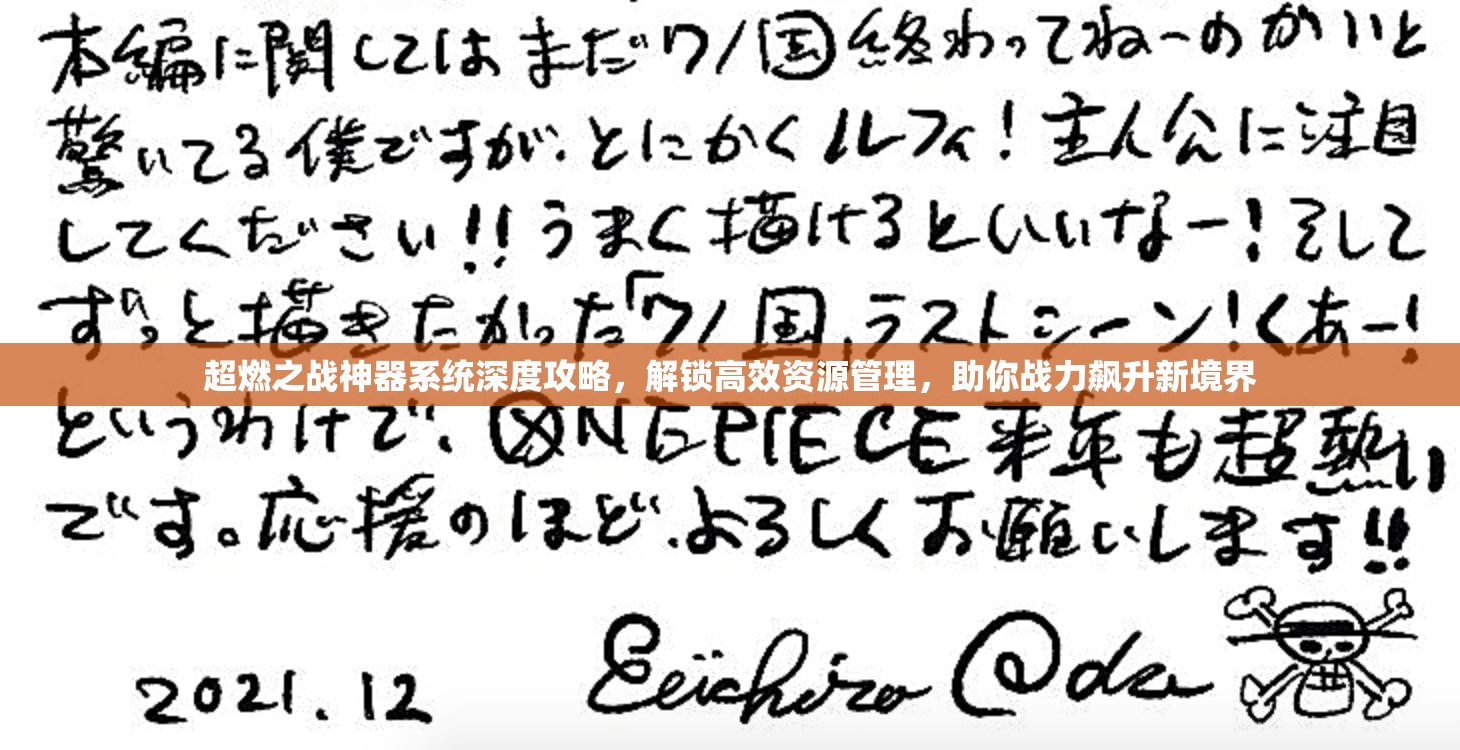 本編に関してはまだワノ国終わってねーのかいと
驚いてる僕ですが、とにかくルフィ！主人公に注目
してください!!うまく描けるといいなー！そして
ずっと描きたかった「ワノ国、ラストシーン！くあー！
超燃之战神器系统深度攻略，解锁高效资源管理，助你战力飙升新境界
というわけで、ONE PIECE来年も超熱い
です。応援のほど、よろしくお願いします!!
2021.12 Eiichiro Oda